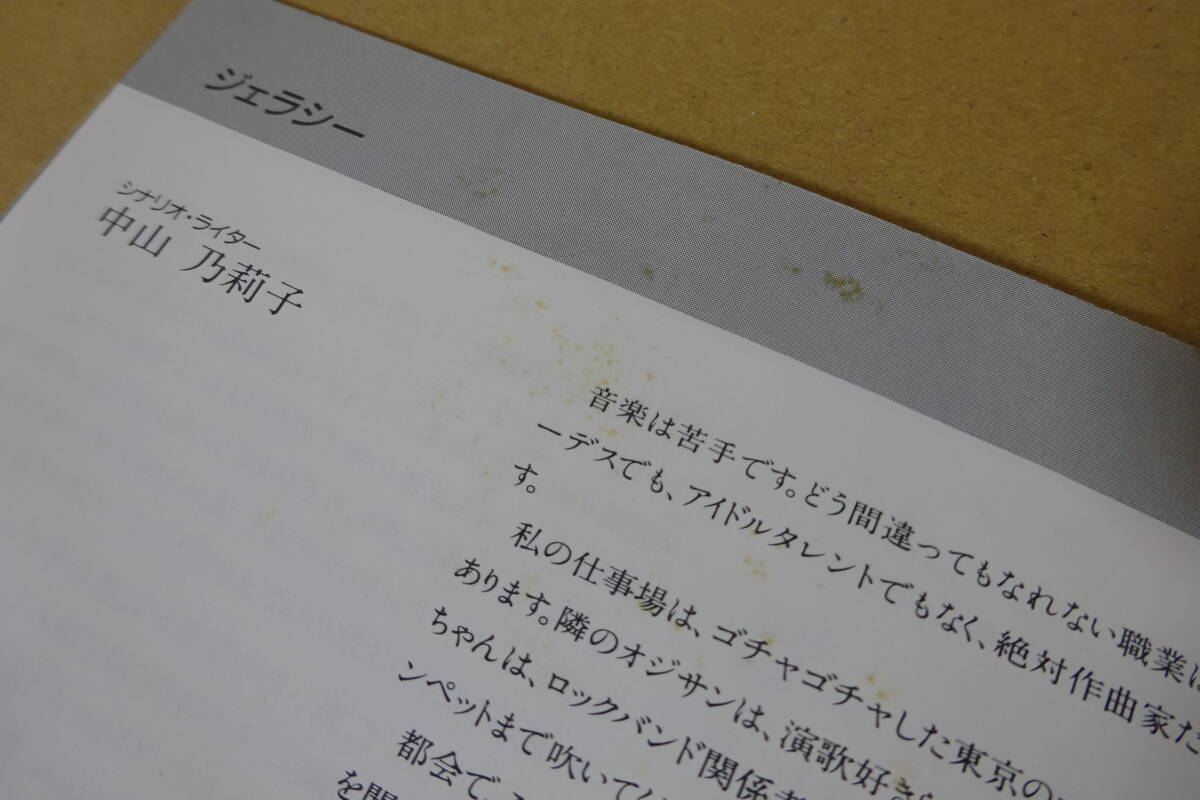 ジェラシー
シナリオ・ライター
中山 乃莉子
音楽は苦手です。どう間違ってもなれない職業は
ーデスでも、アイドルタレントでもなく、絶対作曲家だ
す。
私の仕事場は、ゴチャゴチャした東京の
あります。隣のオジサンは、演歌好き
ちゃんは、ロックバンド関係者
ンペットまで吹いて
都会で、
を